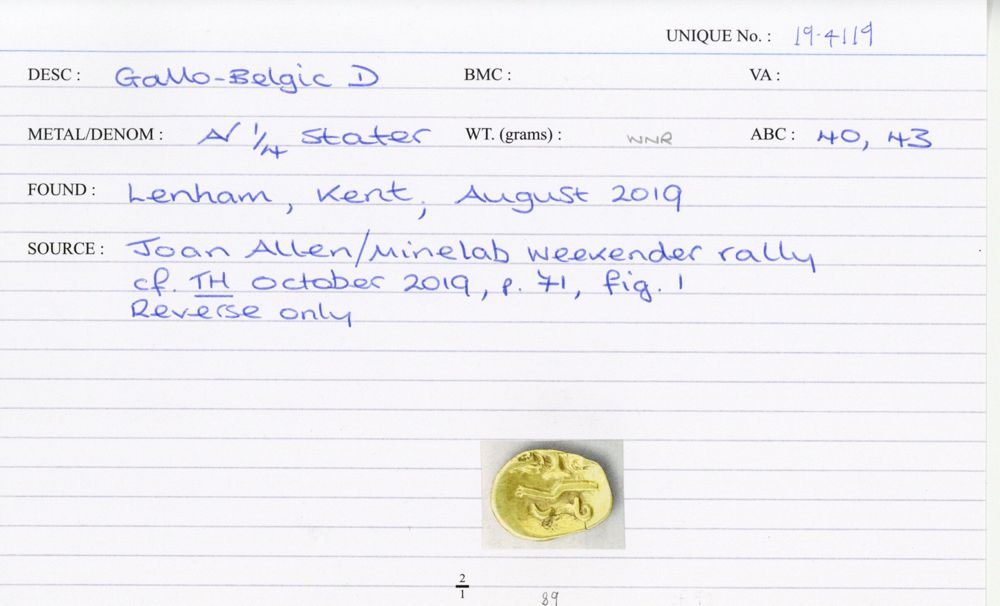 UNIQUE No. : 19-4119
DESC : Gallo-Belgic D BMC : VA :
METAL/DENOM : AV 1/4 Stater WT. (grams) : WNR ABC : 40, 43
FOUND : Lenham, Kent, August 2019
SOURCE : Joan Allen/Minelab Weekender rally
cf. TH October 2019, p. 71, fig. 1
Reverse only
2/1
89